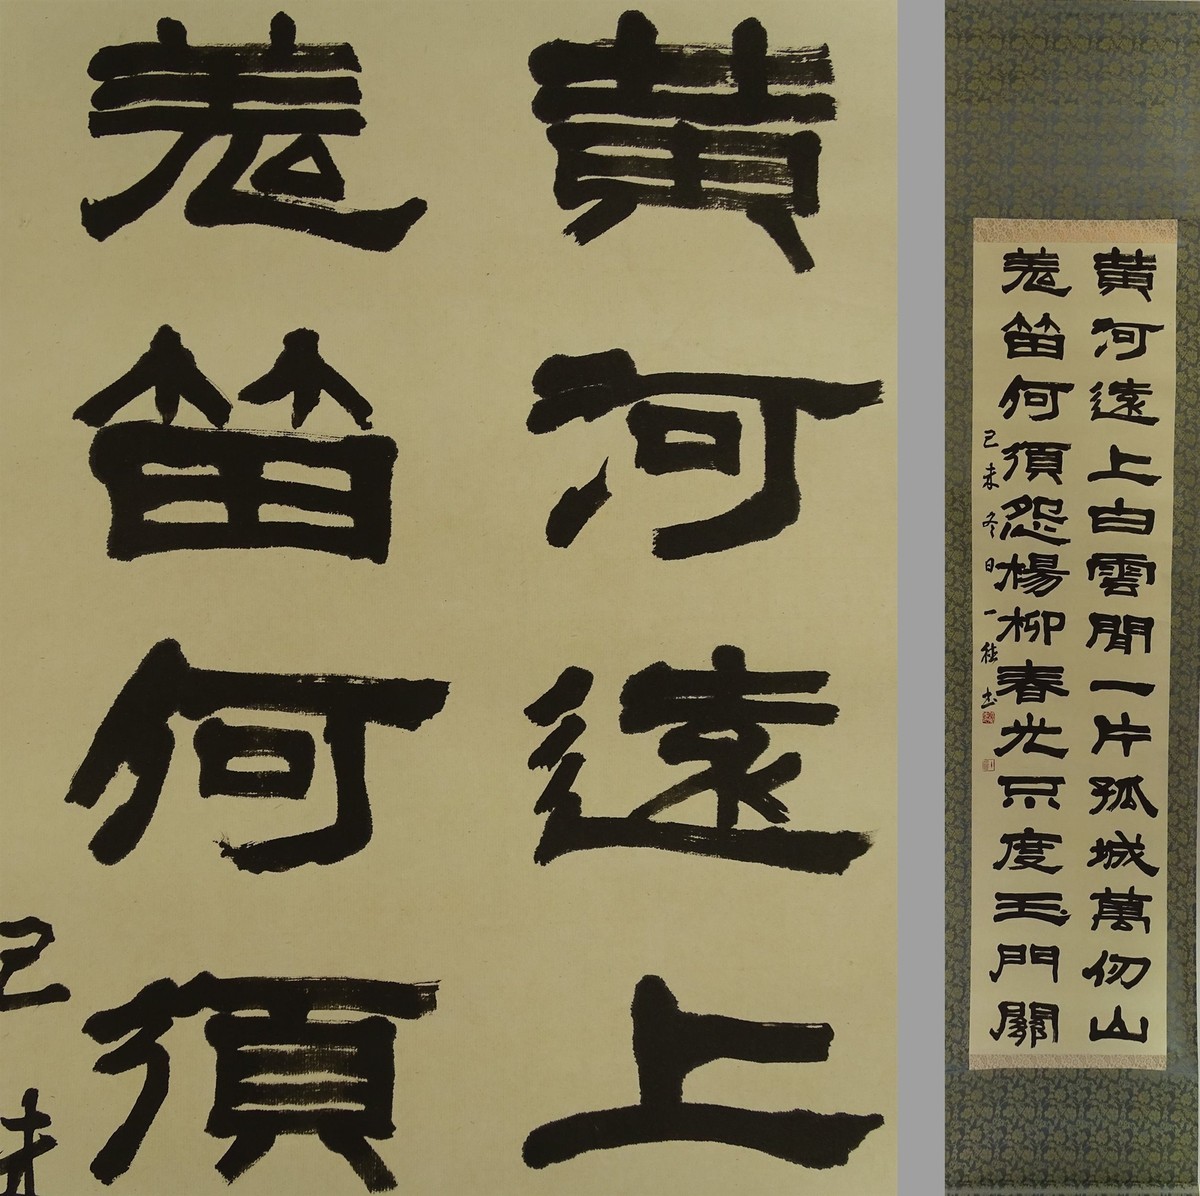 黄河遠上
羌笛何須
己未
黄河遠上白雲閒一片孤城萬仞山
羌笛何須怨楊柳春光不度玉門關
己未冬日一書